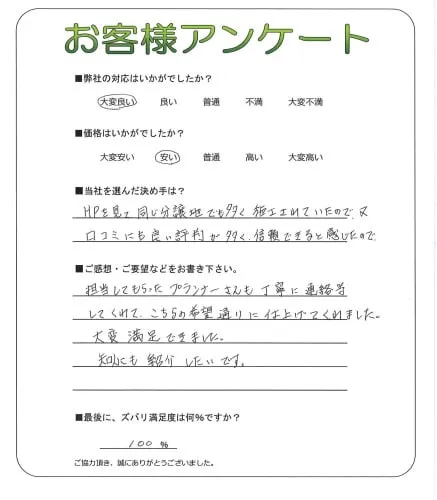 お客様アンケート
■弊社の対応はいかがでしたか？
大変良い 良い 普通 不満 大変不満
■価格はいかがでしたか？
大変安い 安い 普通 高い 大変高い
■当社を選んだ決め手は？
HPを見て同じ分譲地でも多く施工されていたので、又
口コミにも良い評判が多く、信頼できると感じたので
■ご感想・ご要望などをお書き下さい。
担当してもらったプランナーさんも丁寧に連絡等
してくれて、こちらの希望通りに仕上げてくれました。
大変満足できました。
知人にも紹介したいです。
■最後に、ズバリ満足度は何％ですか？
100 ％
ご協力頂き、誠にありがとうございました。